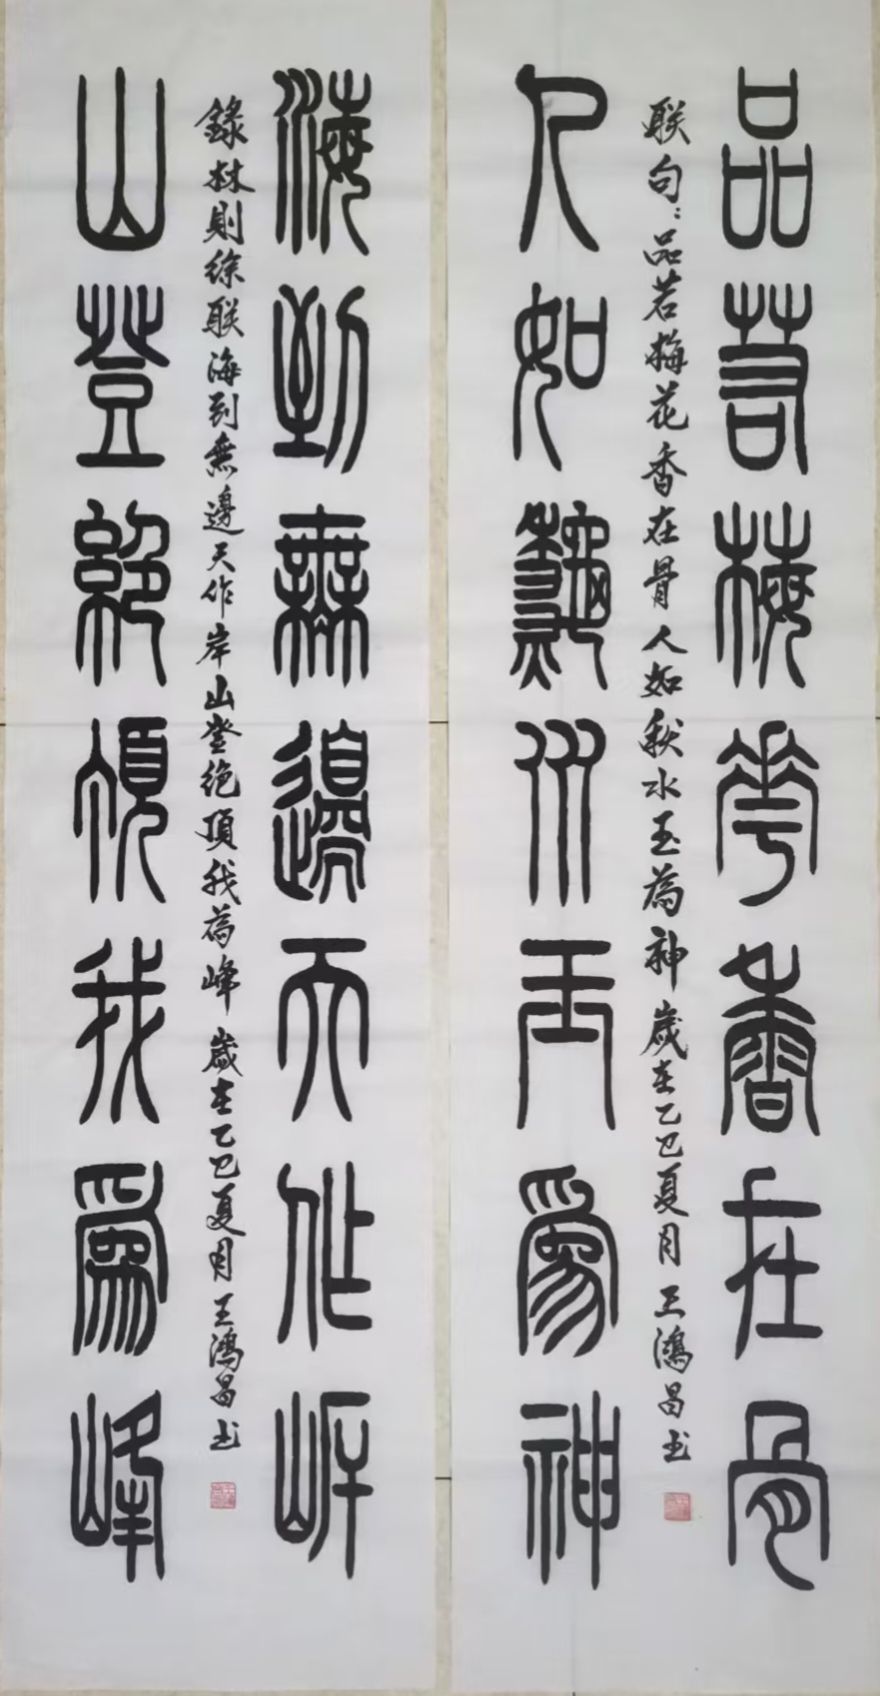 品若梅花香在骨
联句：品若梅花香在骨人如秋水玉為神歲在乙巳夏月王鴻昌书
人如秋水玉為神
海到無邊天作岸
錄林則徐联海到無邊天作岸山登绝頂我為峰歲在乙巳夏月王鴻昌书
山登絕頂我為峰